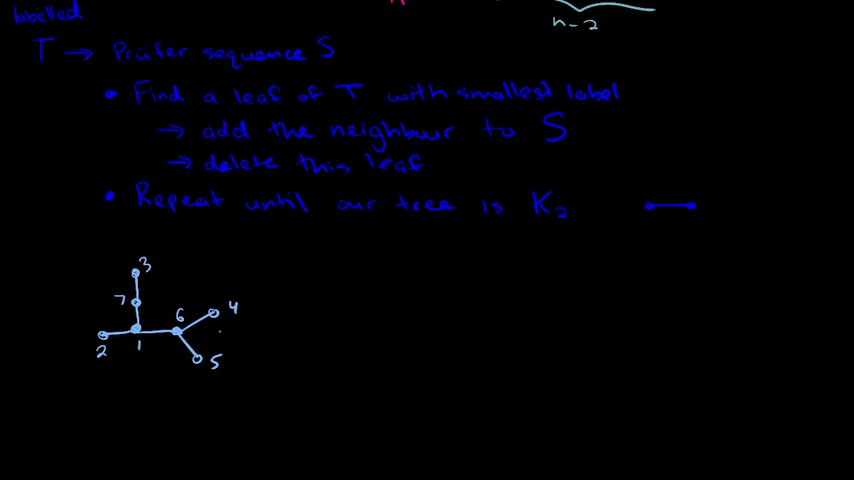 labelled
n-2
T → Prüfer sequence S
• Find a leaf of T with smallest label
→ add the neighbour to S
→ delete this leaf
• Repeat until our tree is K2
3
7
6 4
2 1 5